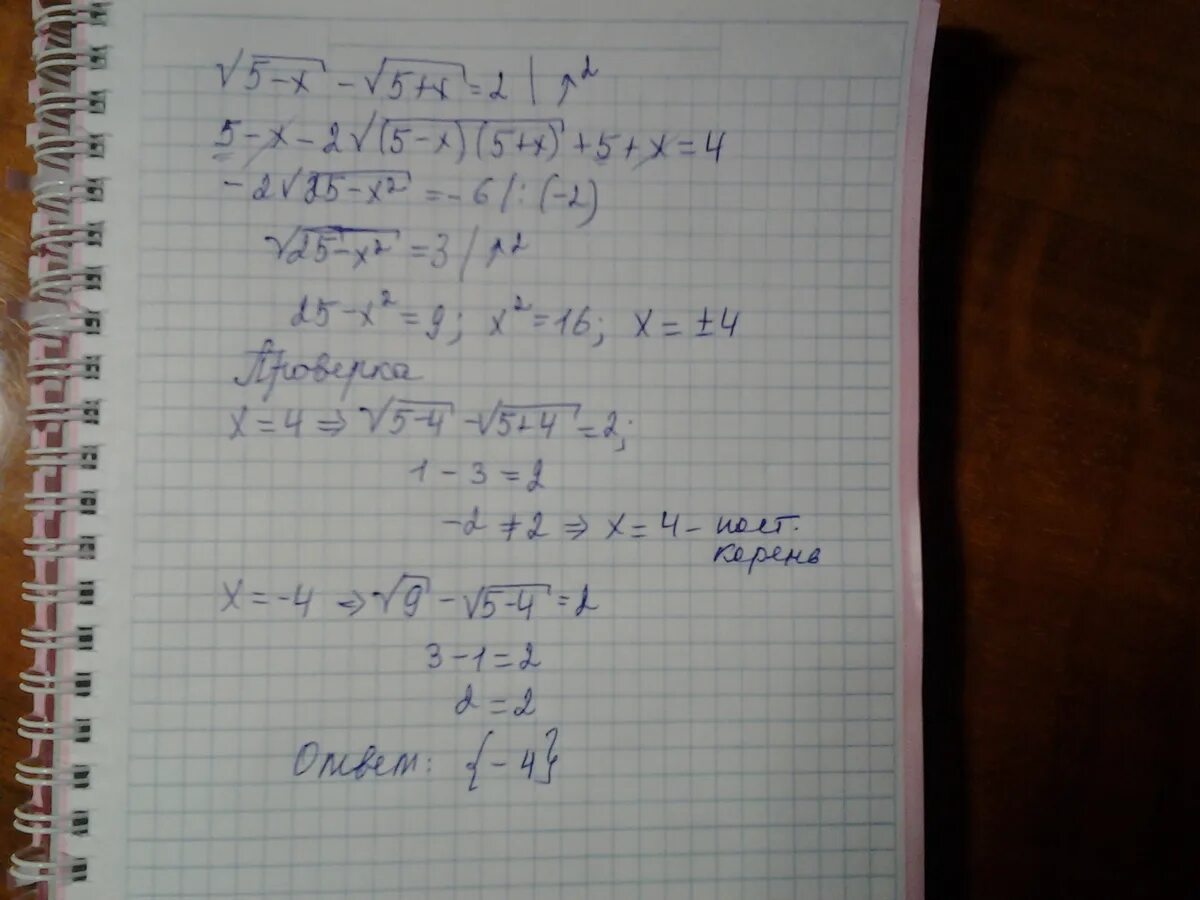 √(5-x) - √(5+x) = 2 | ↑²
5 - x - 2√((5-x)(5+x)) + 5 + x = 4
-2√(25-x²) = -6 /: (-2)
√(25-x²) = 3 / ↑²
25 - x² = 9; x² = 16; x = ±4
Проверка
x = 4 ⇒ √(5-4) - √(5+4) = 2;
1 - 3 = 2
-2 ≠ 2 ⇒ x = 4 - пост.
корень
x = -4 ⇒ √9 - √(5-4) = 2
3 - 1 = 2
2 = 2
Ответ: {-4}